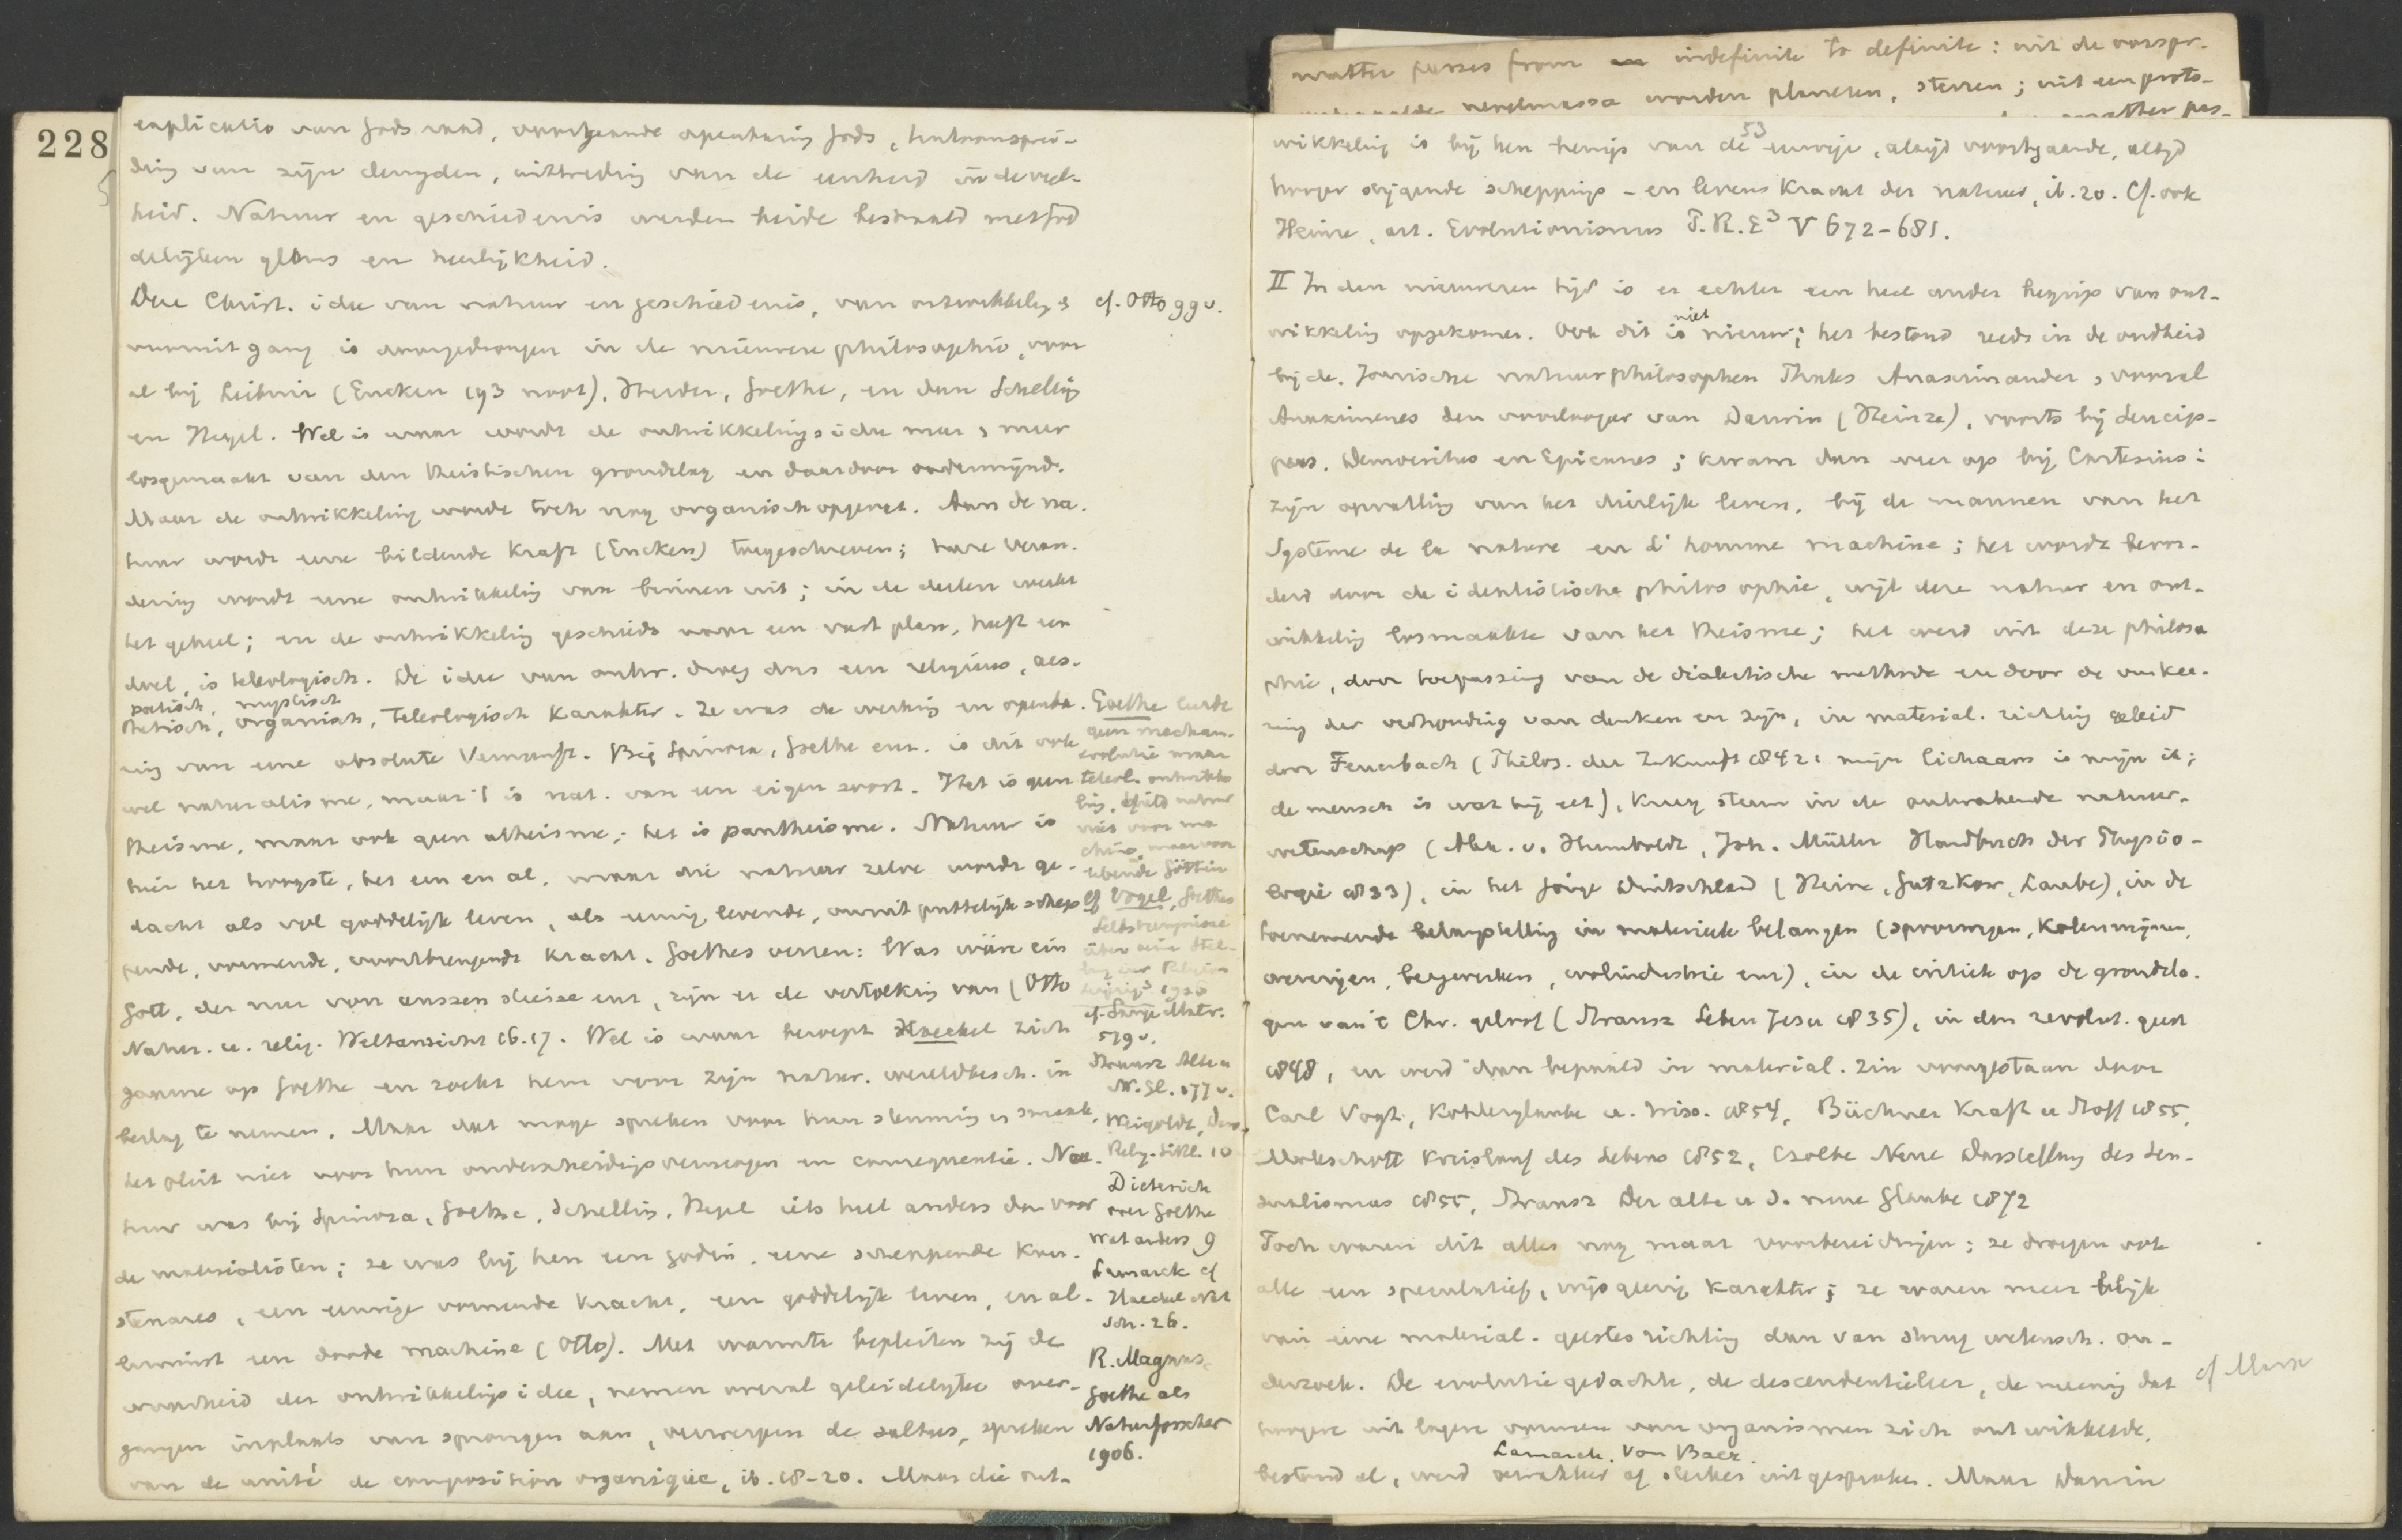 228
explicatio van Gods raad, voortgaande openbaring Gods, tentoonsprei-
ding van zijn deugden, uittreding van de eenheid in de veel-
heid. Natuur en geschiedenis werden beide bestraald met god
delijken glans en heerlijkheid.
Deze Christ. idee van natuur en geschiedenis, van ontwikkeling &
vooruitgang is doorgedrongen in de nieuwere philosophie, voor
al bij Leibniz (Eucken 193 noot), Herder, Goethe, en dan Schelling
en Hegel. Wel is waar wordt de ontwikkelings idee meer & meer
losgemaakt van den theistischen grondslag en daardoor ondermijnd.
Maar de ontwikkeling wordt toch nog organisch opgevat. Aan de na-
tuur wordt eene bildende Kraft (Eucken) toegeschreven; hare veran-
dering wordt eene ontwikkeling van binnen uit; in de deelen werkt
het geheel; en de ontwikkeling geschiedt naar een vast plan, heeft een
doel, is teleologisch. De idee van ontw. droeg dus een religieus, aes-
poëtisch, mystisch
thetisch, organisch, teleologisch karakter. Ze was de werking en openba-
ring van eene absolute Vernunft. Bij Spinoza, Goethe enz. is dit ook
wel naturalisme, maar 't is nat. van een eigen soort. Het is geen
theisme, maar ook geen atheisme; het is pantheisme. Natuur is
hier het hoogste, het een en al, maar die natuur zelve wordt ge-
dacht als vol goddelijk leven, als eeuwig levende, onuitputtelijk schep
pende, vormende, voortbrengende kracht. Goethes verzen: Was wäre ein
Gott, der nur von aussen stiesse enz, zijn er de vertolking van (Otto
Natur. u. relig. Weltansicht 16.17. Wel is waar beroept Haeckel zich
gaarne op Goethe en zoekt hem voor zijn natur. wereldbesch. in
beslag te nemen. Maar dat moge spreken voor hun stemming en smaak,
het pleit niet voor hun onderscheidingsvermogen en consequentie. Na-
tuur was bij Spinoza, Goethe, Schelling, Hegel iets heel anders dan voor
de materialisten; ze was bij hen een godin, eene scheppende kun-
stenares, een eeuwige vormende kracht, een goddelijk leven, en al-
lerminst een doode machine (Otto). Met warmte bepleiten zij de
waarheid der ontwikkelings idee, nemen overal geleidelijke over-
gangen inplaats van sprongen aan, verwerpen de saltus, spreken
van de unité de composition organique, ib. 18-20. Maar die ont-
cf. Otto 99 v.
Goethe leerde
geen mechan.
evolutie maar
teleol. ontwikke
ling, hield natuur
niet voor ma
chine, maar voor
lebende Göttin
cf Vogel, Goethes
Selbstzeugnisse
über seine Stel-
lung zur Religion
Leipzig³ 1920
cf. Lange Mater.
579 v.
Strausz Alte u
N. Gl. 177 v.
Weigoldt, Darw.
Relig. Sittl. 10
Dieterich
over Goethe
wat anders 9
Lamarck cf
Haeckel Nat
Sch. 26.
R. Magnus,
Goethe als
Naturforscher
1906.
matter passes from indefinite to definite: uit de oorspr.
nevelmassa worden planeten, sterren; uit een proto-
matter pas-
53
wikkeling is bij hen teruijs van de eeuwige, altijd voortgaande, altijd
hooger stijgende scheppings- en levens kracht der natuur, ib. 20. Cf. ook
Heinze, art. Evolutionismus P.R.E³ V 672-681.
II In den nieuweren tijd is er echter een heel ander begrip van ont-
wikkeling opgekomen. Ook dit is niet nieuw; het bestond reeds in de oudheid
bij de Ionische natuurphilosophen Thales Anaximander, vooral
Anaximenes den voorlooper van Darwin (Heinze), voorts bij Leucip-
pus, Democritus en Epicurus; kwam dan weer op bij Cartesius:
zijn opvatting van het dierlijke leven, bij de mannen van het
Système de la nature en L'homme machine; het wordt bevor-
derd door de idealistische philosophie, wijl deze natuur en ont-
wikkeling losmaakte van het theisme; het werd uit deze philoso
phie, door toepassing van de dialectische methode en door de omkee-
ring der verhouding van denken en zijn, in material. richting geleid
door Feuerbach (Philos. der Zukunft 1842: mijn lichaam is mijn ik;
de mensch is wat hij eet), kreeg steun in de ontwakende natuur-
wetenschap (Alex. v. Humboldt, Joh. Müller Handbuch der Physio-
logie 1833), in het jonge Duitschland (Heine, Gutzkow, Laube), in de
toenemende belangstelling in materieele belangen (spoorwegen, kolenmijnen,
weverijen, bergwerken, wolindustrie enz), in de critiek op de grondsla-
gen van 't Chr. geloof (Strausz Leben Jesu 1835), in den revolut. geest
1848, en werd dan bepaald in material. zin voorgestaan door
Carl Vogt, Köhlerglaube u. Wiss. 1854, Büchner Kraft u Stoff 1855,
Moleschott Kreislauf des Lebens 1852, Czolbe Neue Darstellung des Sen-
sualismus 1855, Strausz Der alte u d. neue Glaube 1872
Toch waren dit alles nog maar voorbereidingen; ze droegen ook
alle een speculatief, wijsgeerig karakter; ze waren meer blijk
van eene material. geestes richting dan van streng wetensch. on-
derzoek. De evolutie gedachte, de descendentieleer, de meening dat
hoogere uit lagere vormen van organismen zich ontwikkelde,
Lamarck. Von Baer.
bestond al, werd zwakker of sterker uitgesproken. Maar Darwin
cf Marx